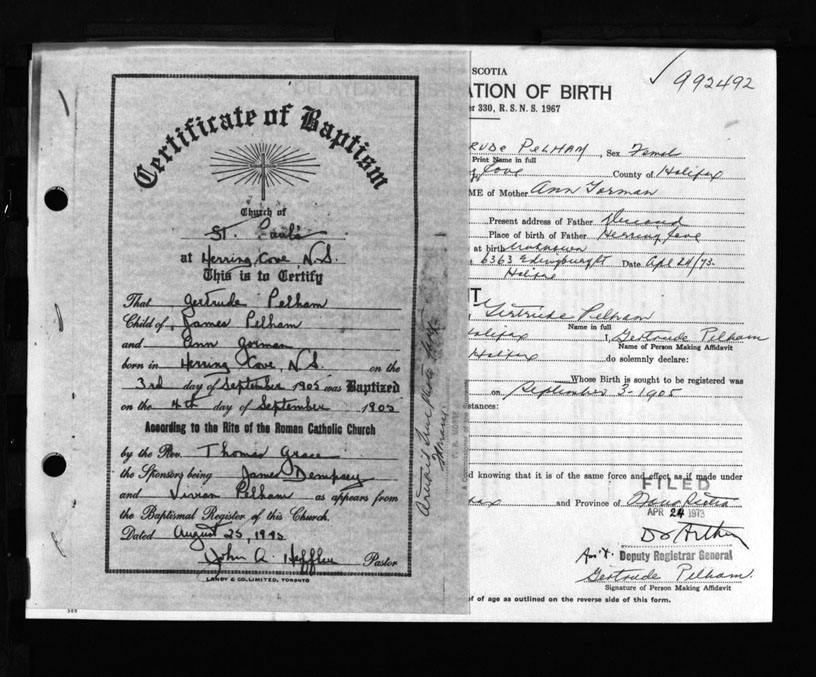 Certificate of Baptism
Church of
St. Paul's
at Herring Cove N.S.
This is to Certify
That Gertrude Pelham
Child of James Pelham
and Ann Gorman
born in Herring Cove N.S. on the
3rd day of September 1905 was Baptized
on the 4th day of September 1905
According to the Rite of the Roman Catholic Church
by the Rev. Thomas Grace
the Sponsors being James Dempsey
and Vivian Pelham as appears from
the Baptismal Register of this Church.
Dated August 25, 19
John A. Pastor
LANDY & CO. LIMITED, TORONTO
SCOTIA
ATION OF BIRTH
er 330, R. S. N. S. 1967
✓ 992492
RUDE PELHAM, Sex Female
Print Name in full
Cove County of Halifax
ME of Mother Ann Gorman
Present address of Father Deceased
Place of birth of Father Herring Cove
at birth unknown
6363 Date Apl 24/73
Halifax
T
Gertrude Pelham
Name in full
Halifax I, Gertrude Pelham
Name of Person Making Affidavit
Halifax do solemnly declare:
Whose Birth is sought to be registered was
on September 3-1905
stances:
d knowing that it is of the same force and effect as if made under
FILED
fax and Province of Nova Scotia
APR 24 1973
Deputy Registrar General
Gertrude Pelham
Signature of Person Making Affidavit
of age as outlined on the reverse side of this form.